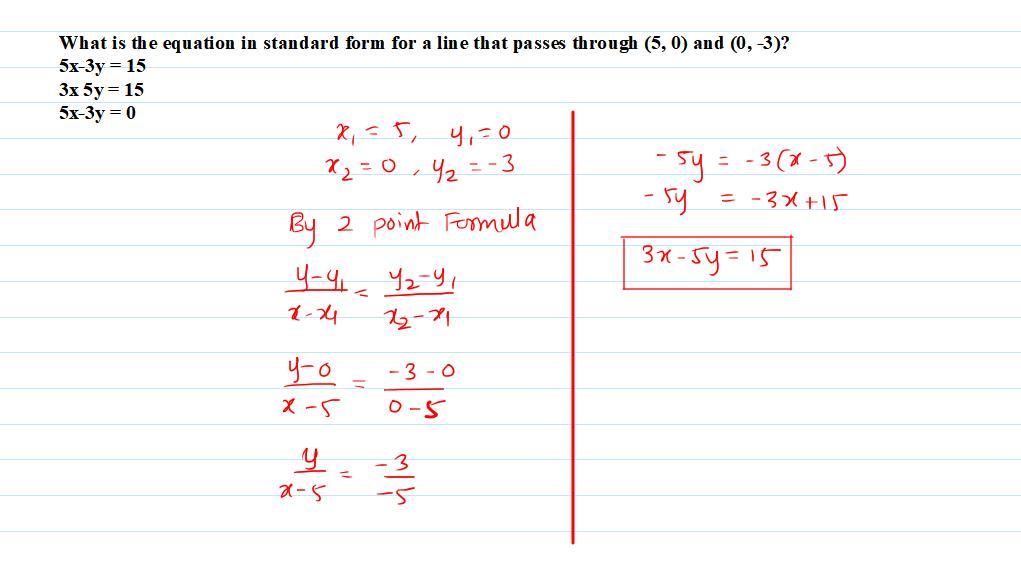 What is the equation in standard form for a line that passes through (5, 0) and (0, -3)?
5x-3y = 15
3x 5y = 15
5x-3y = 0
x₁ = 5, y₁ = 0
x₂ = 0, y₂ = -3
By 2 point Formula
(y-y₁)/(x-x₁) = (y₂-y₁)/(x₂-x₁)
(y-0)/(x-5) = (-3-0)/(0-5)
y/(x-5) = -3/-5
-5y = -3(x-5)
-5y = -3x+15
3x-5y = 15